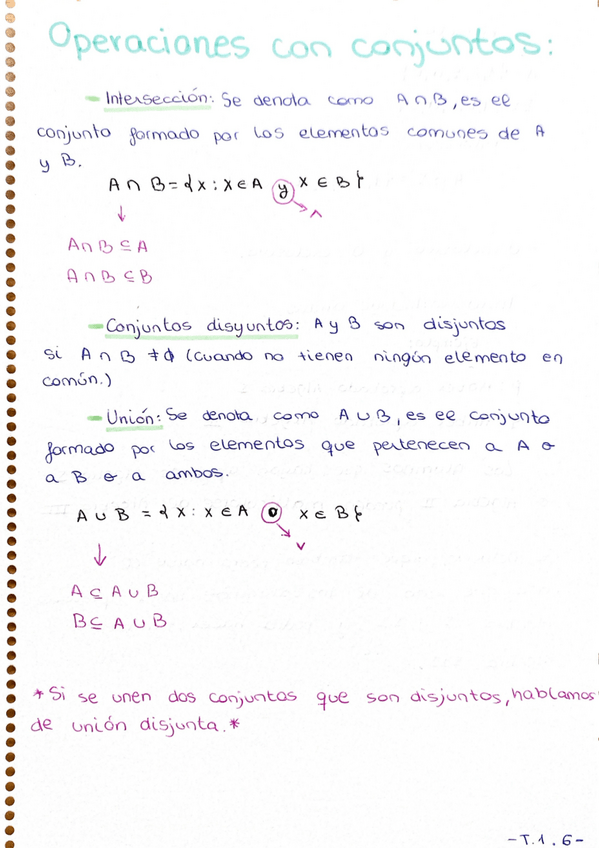 Operaciones con conjuntos:
- Intersección: Se denota como A ∩ B, es el
conjunto formado por los elementos comunes de A
y B.
A ∩ B = { x : x ∈ A y x ∈ B }
↓ → ∧
A ∩ B ⊆ A
A ∩ B ⊆ B
- Conjuntos disyuntos: A y B son disjuntos
si A ∩ B ≠ ϕ (cuando no tienen ningún elemento en
común.)
- Unión: Se denota como A ∪ B, es el conjunto
formado por los elementos que pertenecen a A o
a B o a ambos.
A ∪ B = { x : x ∈ A o x ∈ B }
↓ → ∨
A ⊆ A ∪ B
B ⊆ A ∪ B
* Si se unen dos conjuntos que son disjuntos, hablamos
de unión disjunta. *
- T.1 . 6 -